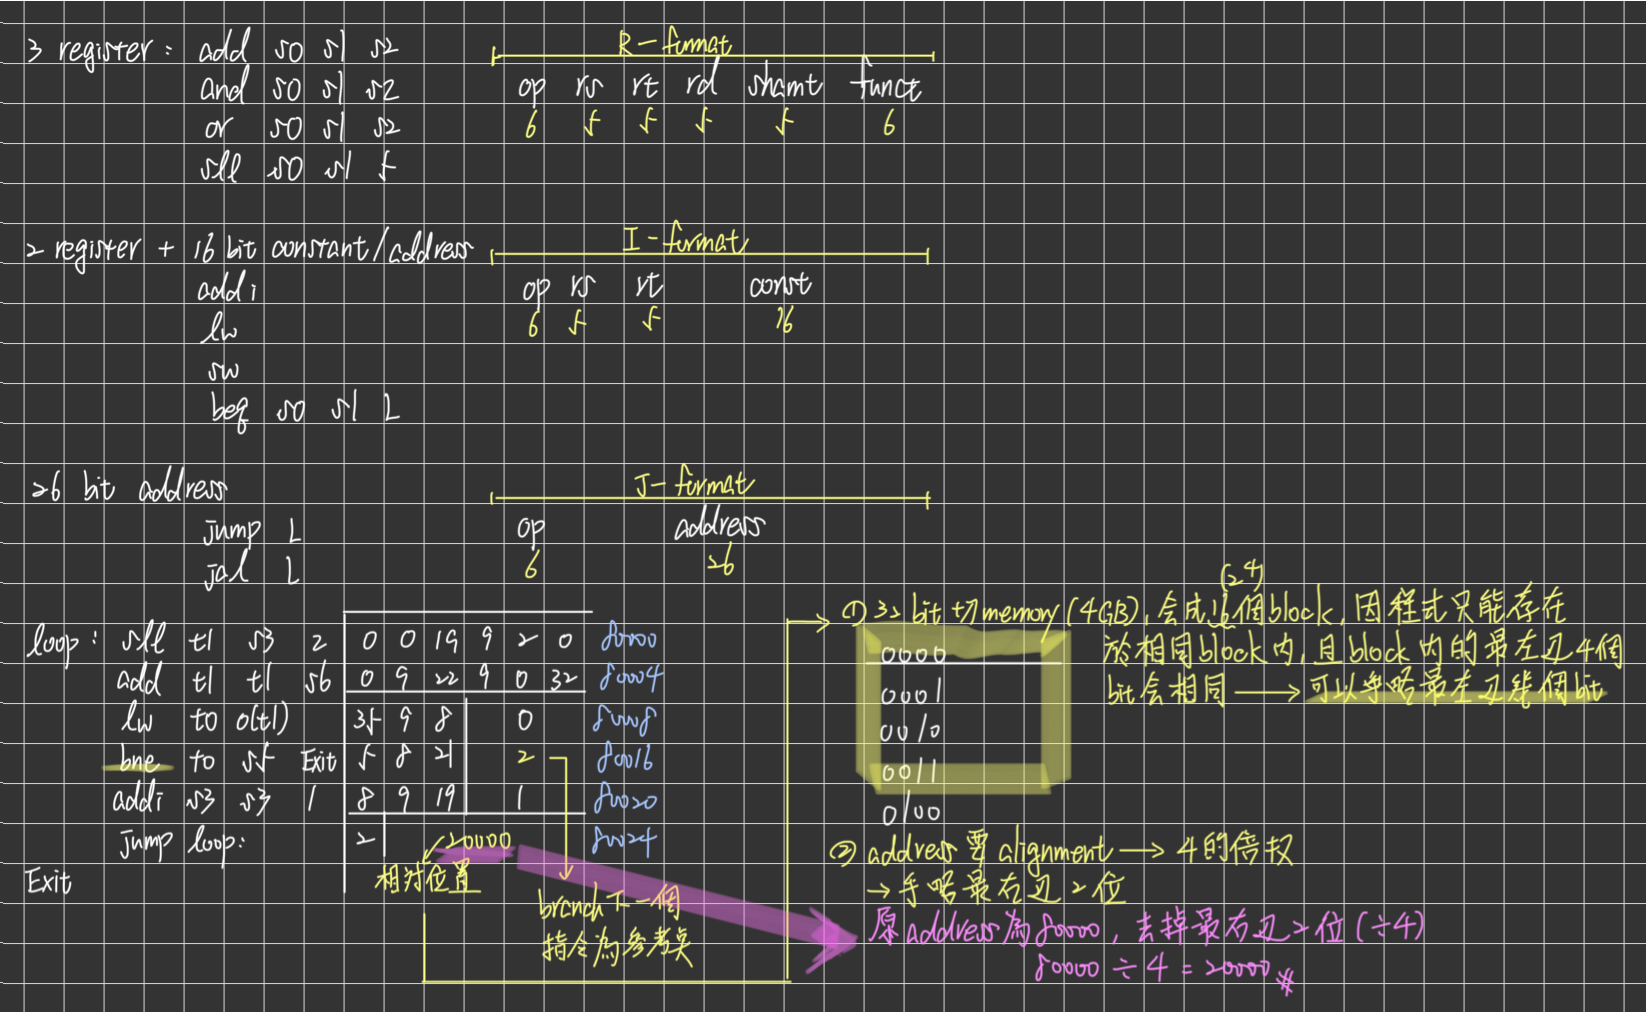 3 register : add s0 s1 s2
and s0 s1 s2
or s0 s1 s2
sll s0 s1 5
R-format
op rs rt rd shamt funct
6 5 5 5 5 6
2 register + 16 bit constant/address
addi
lw
sw
beq s0 s1 L
I-format
op rs rt const
6 5 5 16
26 bit address
jump L
jal L
J-format
op address
6 26
loop : sll t1 s3 2 0 0 19 9 2 0 80000
add t1 t1 s6 0 9 22 9 0 32 80004
lw t0 0(t1) 35 9 8 0 80008
bne t0 s5 Exit 5 8 21 2 80016
addi s3 s3 1 8 9 19 1 80020
jump loop: 2 20000 80024
Exit
相對位置
branch下一個
指令為參考點
① 32 bit 切memory (4GB), 会成16個block, 因程式只能存在
(2^4)
於相同block内, 且block内的最左边4個
bit会相同 → 可以乎略最左边幾個bit
0000
0001
0010
0011
0100
② address要alignment → 4的倍収
→ 乎略最右边2位
原address為80000, 去掉最右边2位(÷4)
80000 ÷ 4 = 20000 #